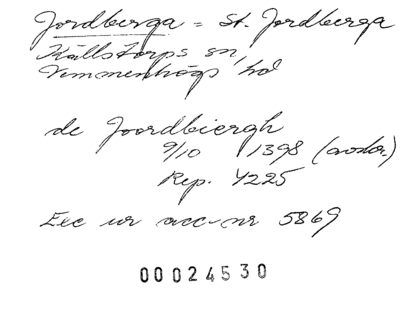 Jordberga = St. Jordberga
Källstorps sn,
Vemmenhögs hd
de Joordbiergh
9/10 1398 (avskr.)
Rep. 4225
Exc ur acc-nr 5869
00024530